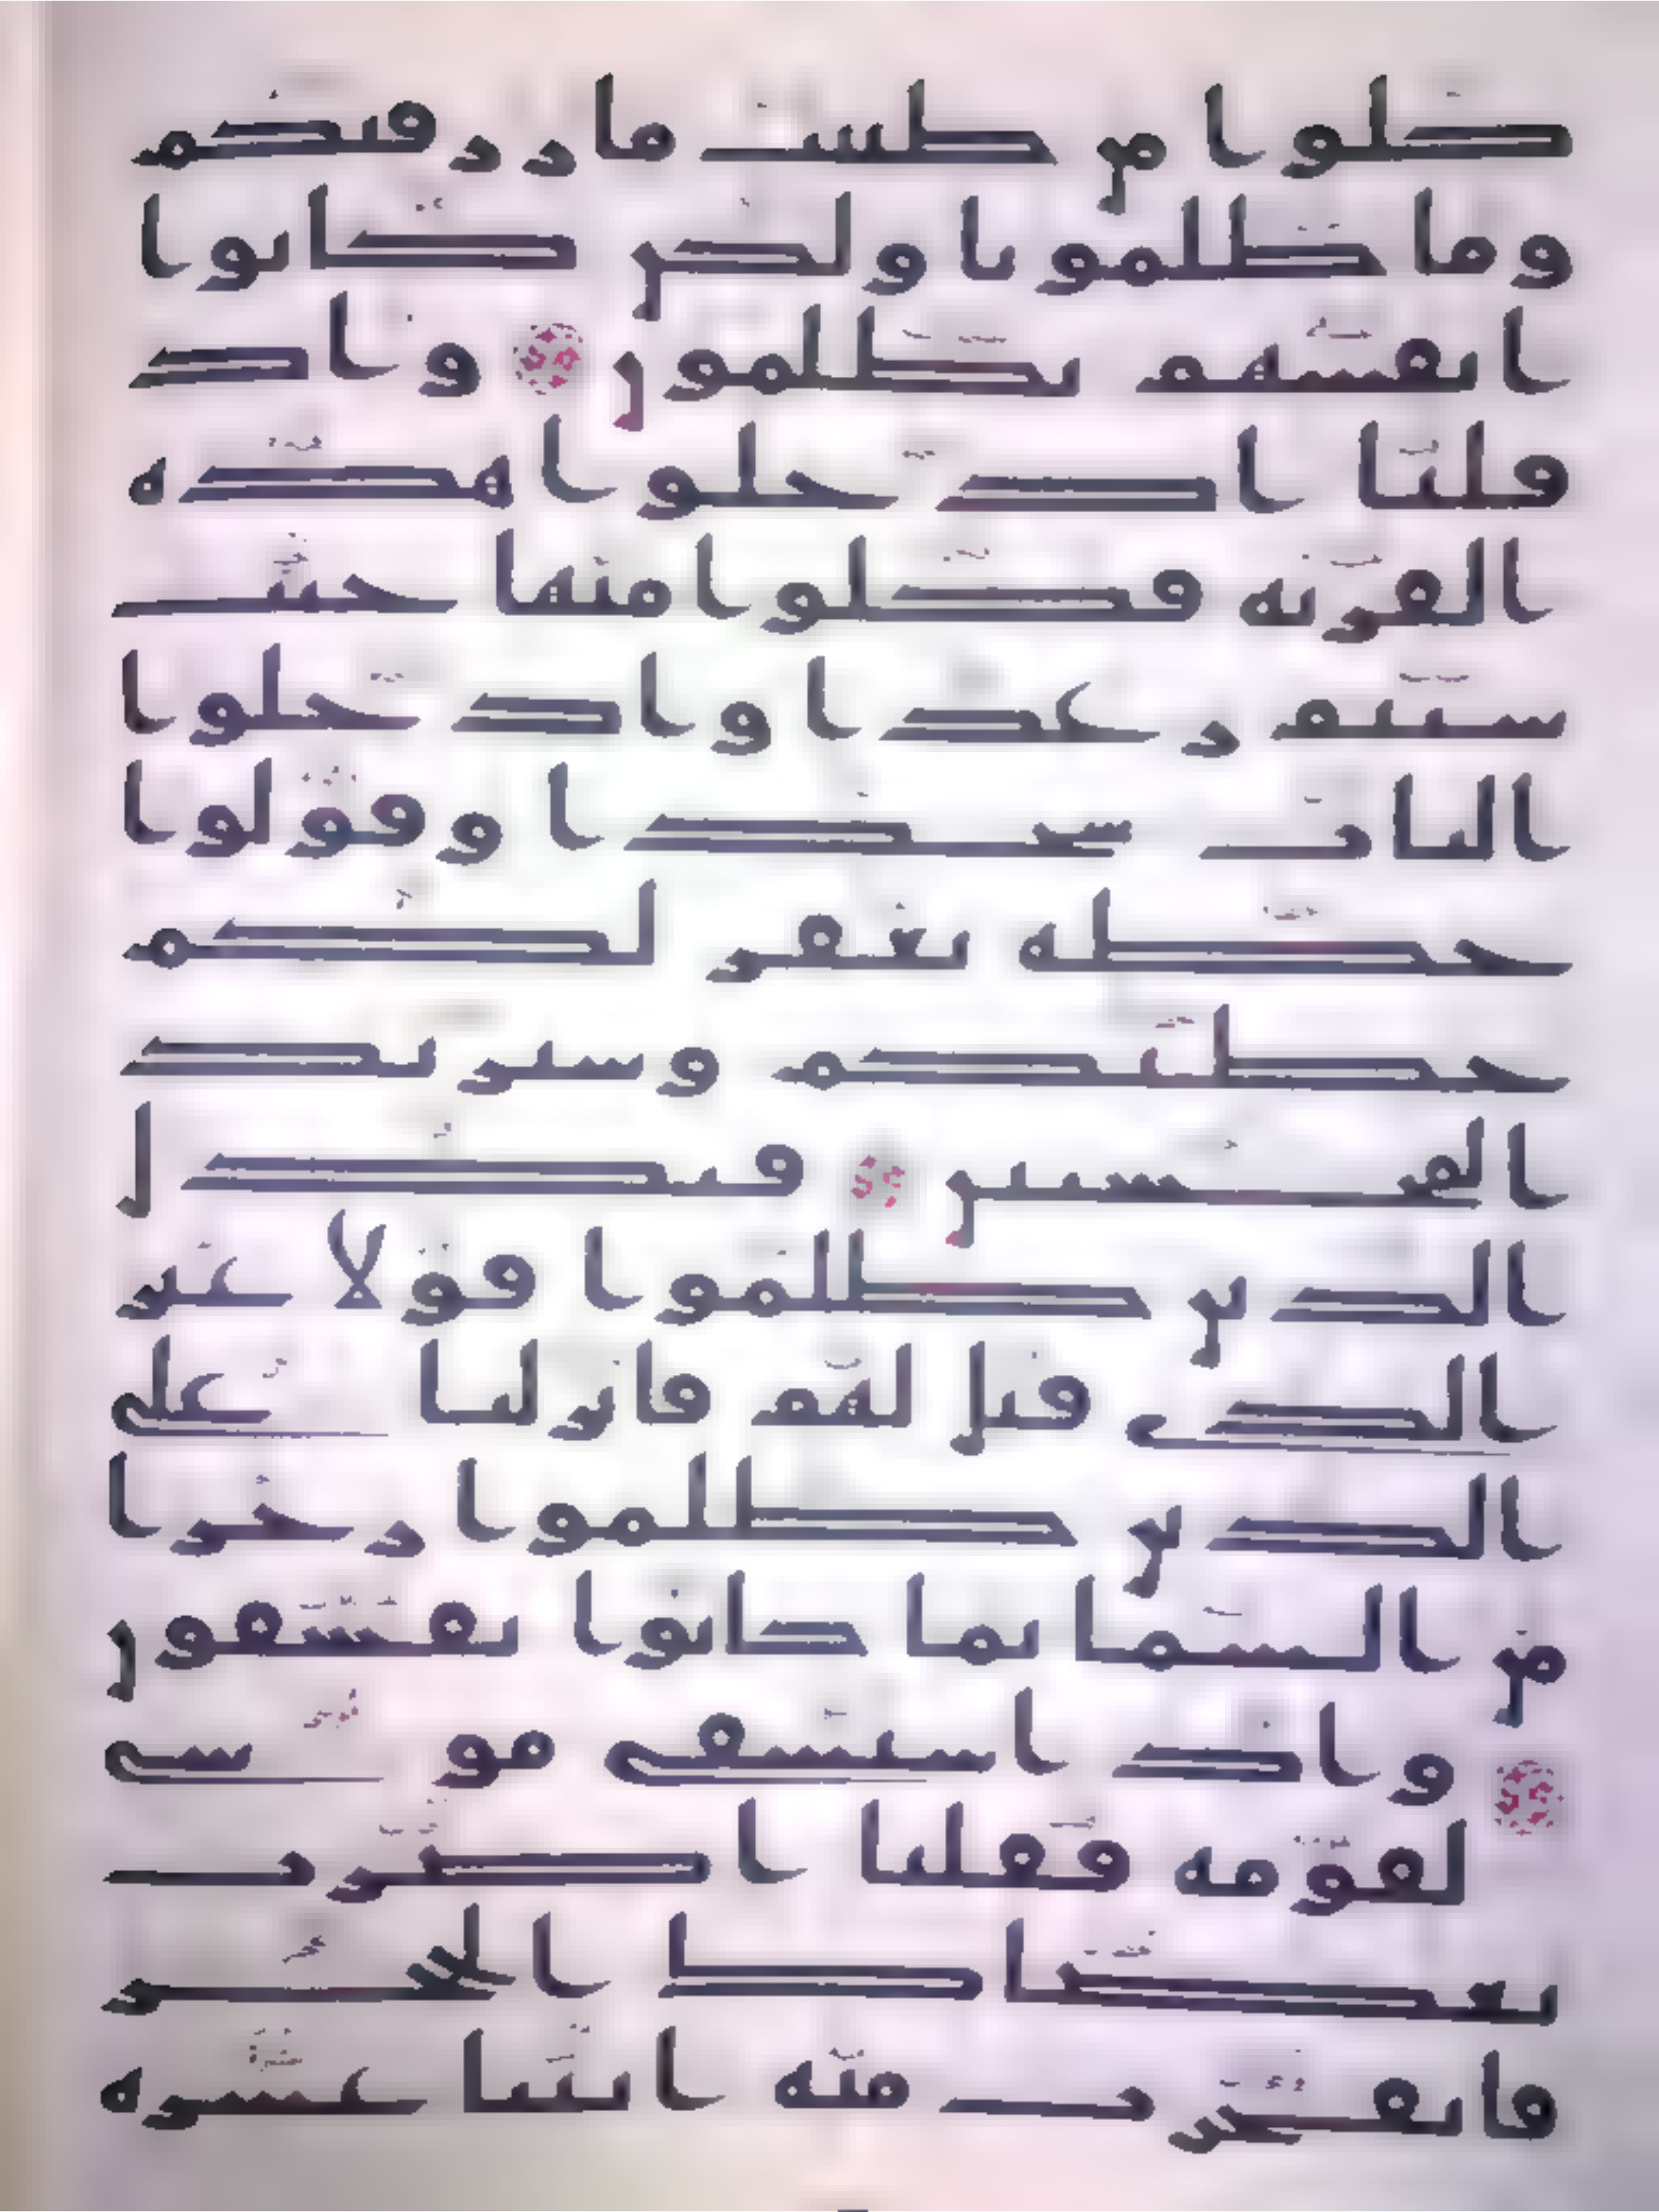 كلوا من طيبت ما رزقنكم
وما ظلمونا ولكن كانوا
انفسهم يظلمون واذ
قلنا ادخلوا هذه
القرية فكلوا منها حيث
شئتم رغدا وادخلوا
الباب سجدا وقولوا
حطة نغفر لكم
خطيكم وسنزيد
المحسنين فبدل
الذين ظلموا قولا غير
الذي قيل لهم فانزلنا على
الذين ظلموا رجزا
من السما بما كانوا يفسقون
واذ استسقى موسى
لقومه فقلنا اضرب
بعصاك الحجر
فانفجرت منه اثنتا عشرة